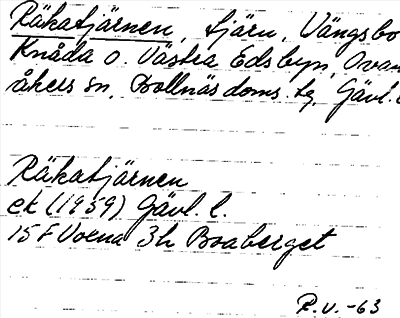 Räkatjärnen, tjärn, Vängsbo
Knåda o. Västra Edsbyn, Ovan
åkers sn, Bollnäs doms. tg, Gävl.
Räkatjärnen
ek (1959) Gävl. l.
15 F Voxna 3h Boaberget
R.V. -63